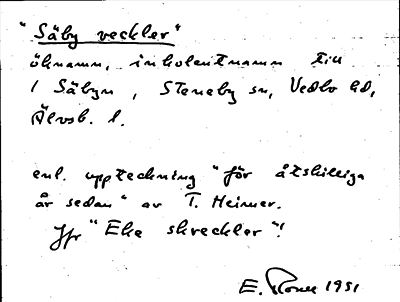 "Säby veckler"
öknamn, inkolentnamn till
1 Säbyn, Steneby sn, Vedbo hd,
Älvsb. l.
enl. uppteckning "för åtskilliga
år sedan" av T. Heimer.
Jfr "Eke skreckler"!
E. 1951